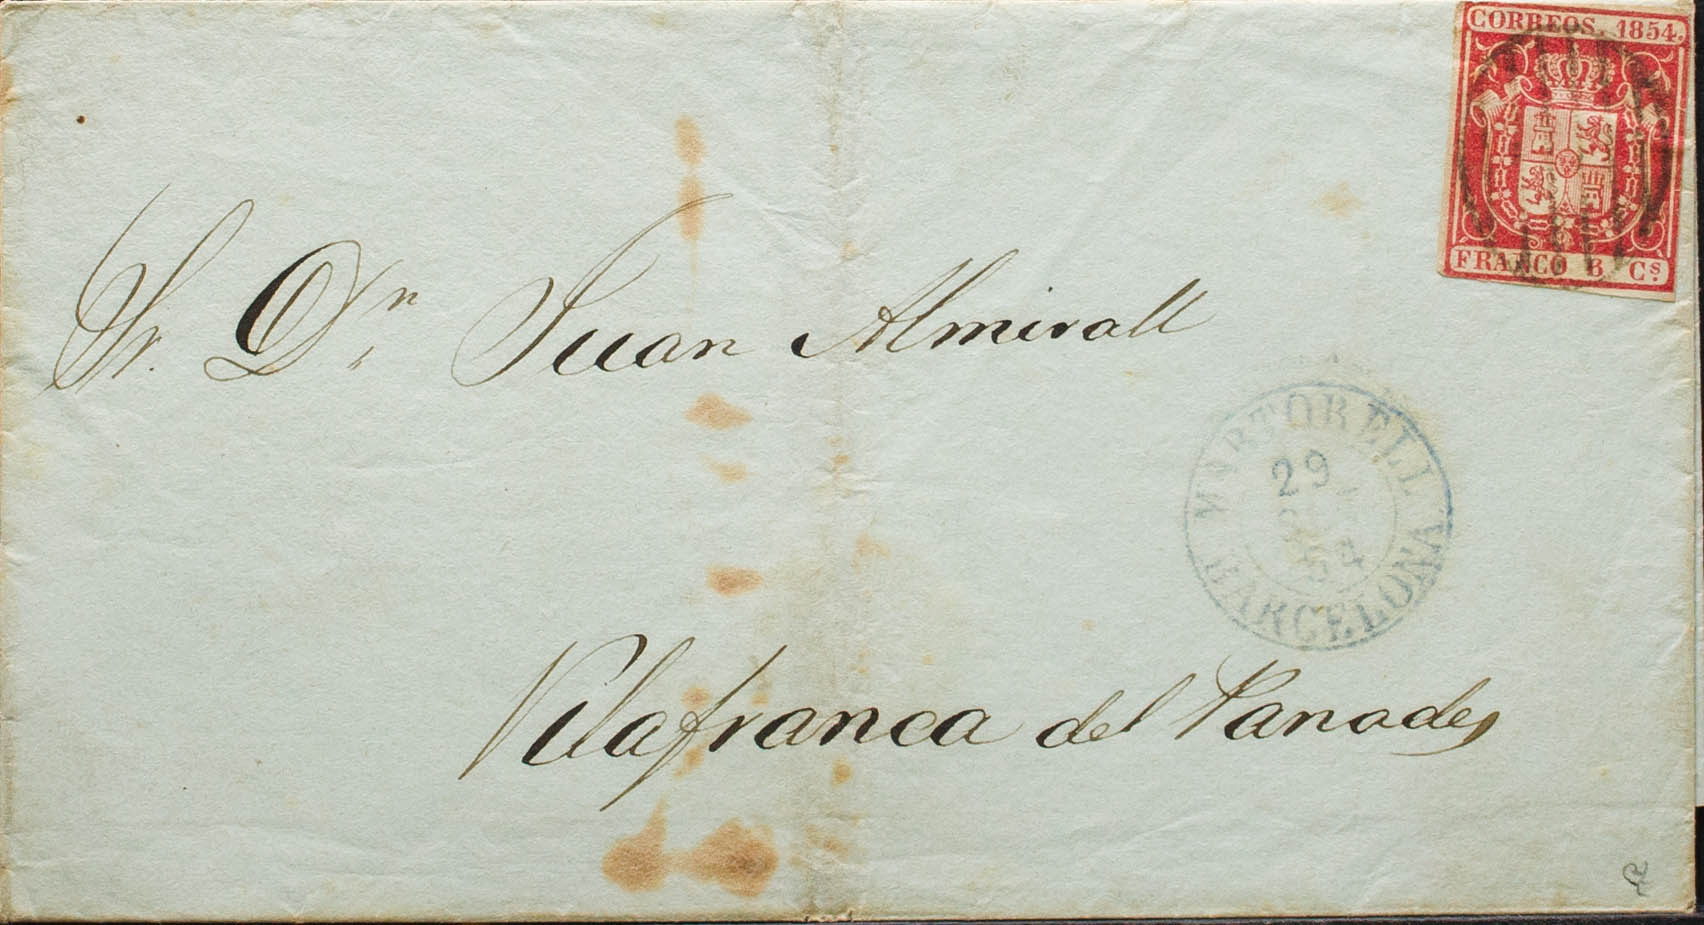 CORREOS. 1854.
FRANCO 6 Cs.
Sr. Dn. Juan Almirall
MARTORELL
29
54
BARCELONA
Vilafranca del Panades